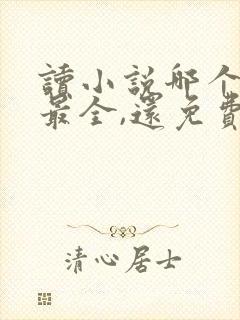 讀小説哪个
最全,還免費
清心居士